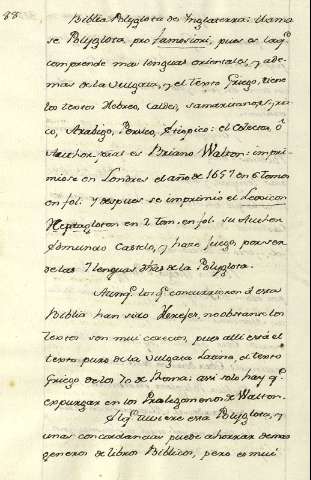 88.
Biblia Polyglota de Inglaterra: llama
se Polyglota pro famosiori, pues es la q.e
comprende mas lenguas orientales, y ade
mas de la Vulgata, y el texto Griego, tiene
los textos Hebreo, Caldeo, Samaritano, Syria
co, Arabigo, Persico, Etiopico: el Colector, ô
Author, es Briano Walton: impri
miose en Londres el año de 1657 en 6 tomos
en fol. Y despues se imprimió el Lexicon
Heptagloton en 2 tom. en fol. su Author
Edmundo Castelo, y hace juego, por ser
de las 7 lenguas dhas de la Polyglota.
Aunq. los q. concurrieron á esta
Biblia han sido Herejes, no obstante los
textos son mui correctos, pues alli está el
texto puro de la Vulgata Latina, el texto
Griego de los 70 de Roma: asi solo hay q.
expurgar en los Prolegomenos de Walton.
Al q. tuviere esta Polyglota, y
unas concordancias puede ahorrar demas
generos de libros Biblicos, pero es mui